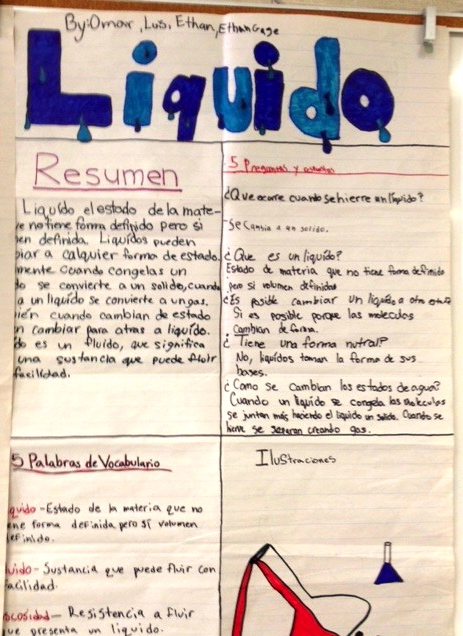 By: Omar, Luis, Ethan, Ethan Gage
Liquido
Resumen
Liquído el estado de la mate-
no tiene forma definido pero si
definida. Liquídos pueden
a calquier forma de estado.
cuando congelas un
se convierte a un solido, cuando
a un liquído se convierte a un gas.
cuando cambian de estado
n cambiar para atras a líquido.
es un fluido, que significa
una sustancia que puede fluir
facilidad.
5 Preguntas y
¿Que ocorre cuando se hierre un líquido?
-Se cambia a un solido.
¿Que es un líquido?
Estado de materia que no tiene forma definido
pero si volumen definidas
¿Es posible cambiar un líquido a otro
Si es posible porque las moleculas
Cambian de forma.
¿Tiene una forma nutral?
No, liquidos toman la forma de sus
bases.
¿Como se cambian los estados de agua?
Cuando un líquido se congela las moleculas
se juntan más haciendo el líquido un solido. Cuando se
hierve se separan creando gas.
5 Palabras de Vocabulario
quido - Estado de la materia que no
ene forma definida pero sí volumen
definido.
uido - Sustancia que puede fluir con
facilidad.
scosidad - Resistencia a fluir
que presenta un liquido.
Ilustraciones